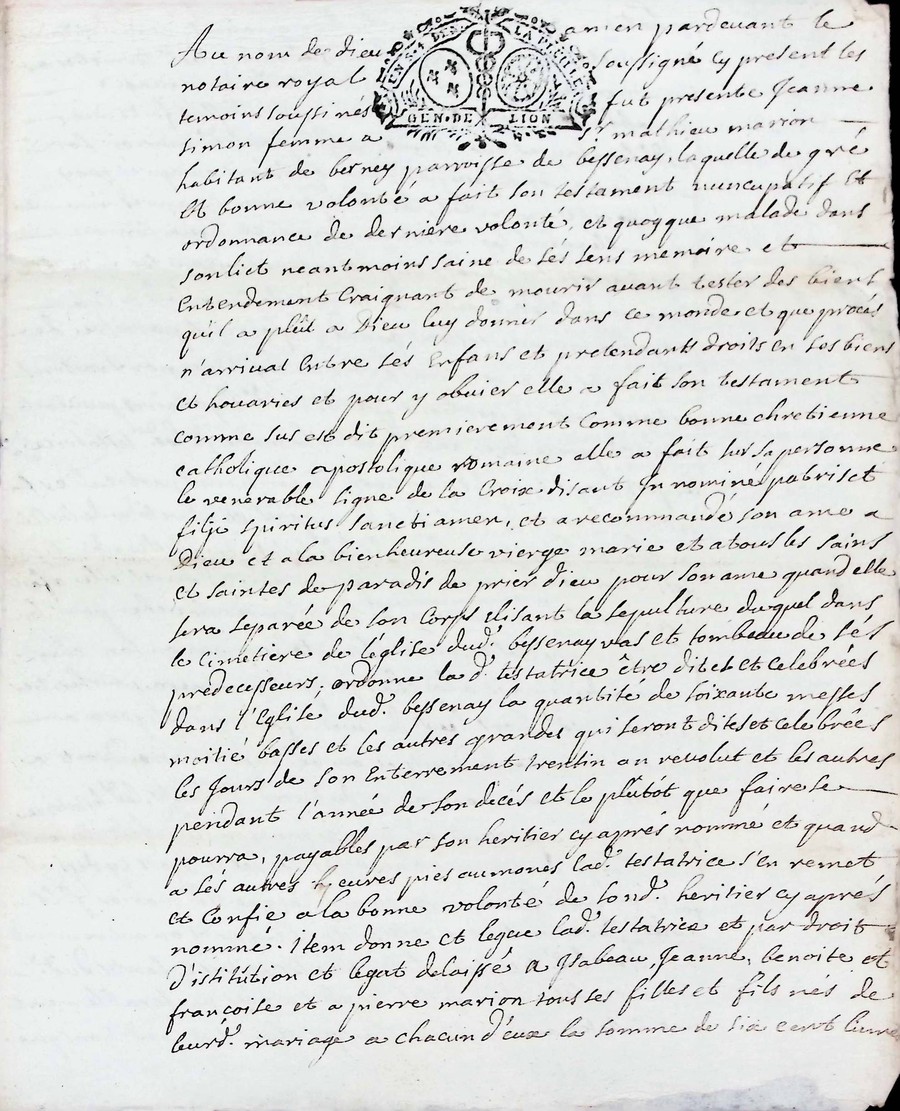 Au nom de dieu amen pardevant le
notaire royal soussigné cy present les
temoins soussinés fut presente Jeanne
simon femme a Sr mathieu marion
habitant de berney parroisse de bessenay, laquelle de gré
et bonne volonté a fait son testament nuncupatif et
ordonnance de derniére volonté, et quoyque malade dans
son lict neantmoins saine de sés sens memoire et
Entendement Craignant de mourir avant tester des biens
qu'il a plût a Dieu luy donner dans ce monde et que procés
n'arrivat Entre sés Enfans et pretendants droits en sos biens
et houaries et pour y obvier elle a fait son testament
comme sus est dit premierement Comme bonne chretienne
catholique apostolique romaine elle a fait sur sa personne
le venerable signe de la Croix disant In nominé patris et
filji spiritus sancti amen, et a recommandé son ame a
Dieu et a la bienheureuse vierge marie et a tous les sains
et saintes de paradis de prier dieu pour son ame quand elle
sera separée de son Corps Elisant la sepulture duquel dans
le Cimetiére de l'église dud. bessenay vas et tombeau de sés
predecesseurs, ordonne la d. testatrice être dites et celebrées
dans l'Eglise dud. bessenay la quantité de soixante messes
moitié basses et les autres grandes qui seront dites et celebrées
les Jours de son Enterrement trentin an revolut et les autres
pendant l'année de son decés et le plûtôt que faire se
pourra, payables par son heritier cy aprés nommé et quand
a sés autres heures pies aumones lad. testatrice s'en remet
et Confie a la bonne volonté de sond. heritier cy aprés
nommé. item donne et legue lad. testatrice et par droit
d'istitution et legat delaissé a Isabeau, Jeanne, benoite et
françoise et a pierre marion tous ses filles et fils nés de
leurd. mariage a chacun d'eux la somme de six cent livres
GEN·DE LION